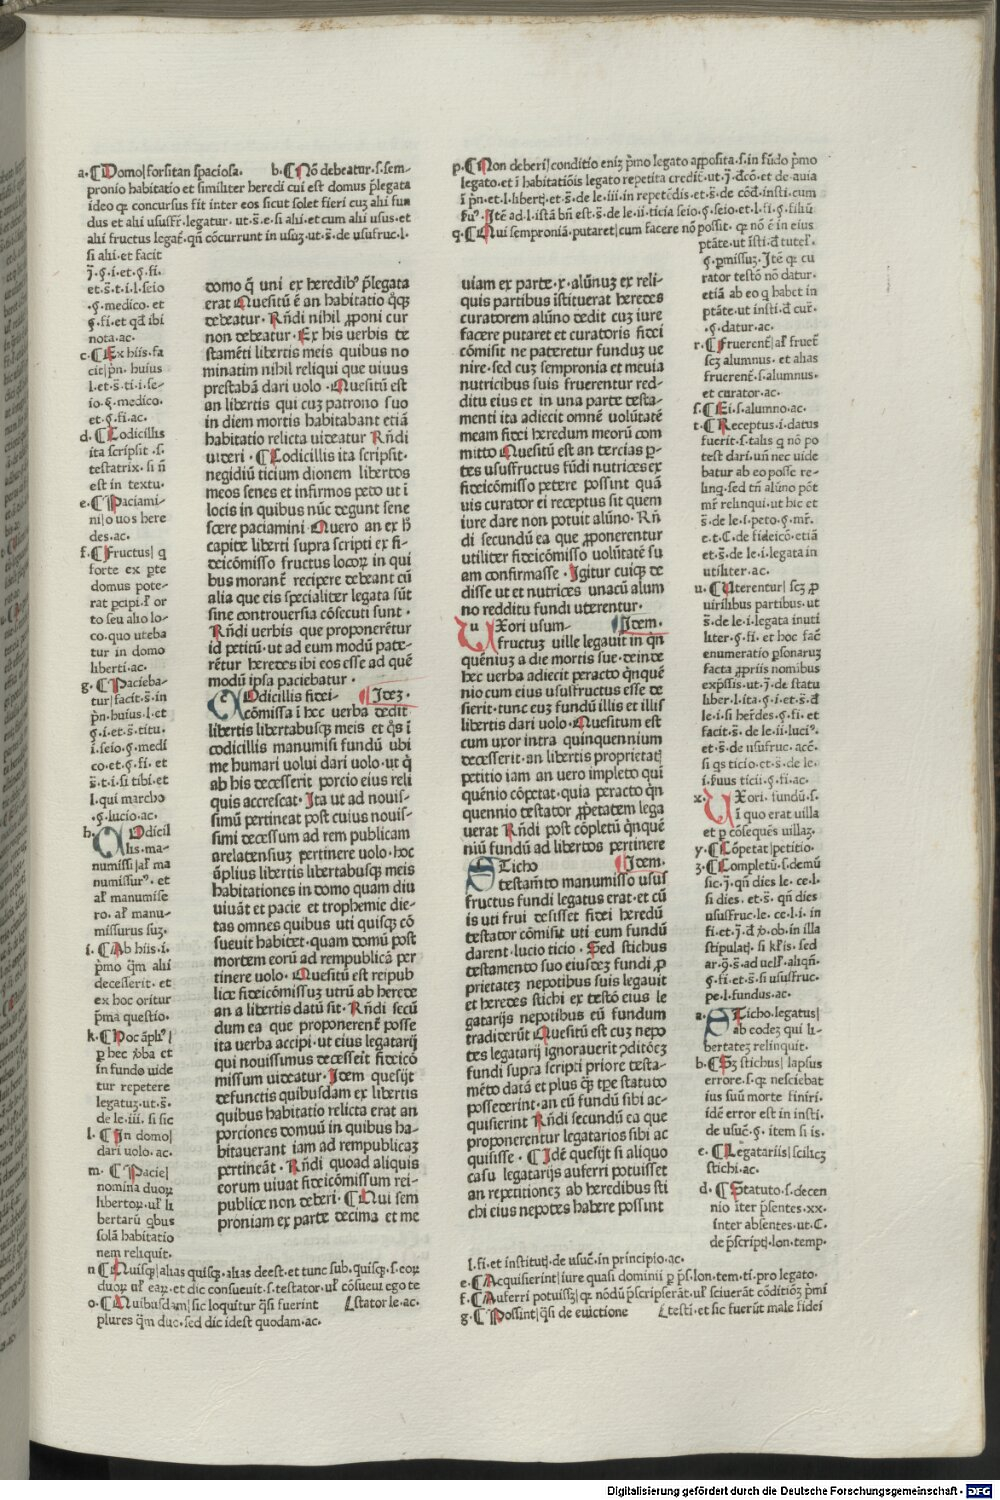 a.¶Domo|forsitan spaciosa. b.¶Nō debeatur.s.sem-
pronio habitatio et similiter heredi cui est domus p̄legata
ideo qꝛ concursus fit inter eos sicut solet fieri cuꝫ ahi fun
dus et ahi ususfr̄.legatur. ut.s̄.e.si ahi.et cum ahi usus.et
ahi fructus legat̄.qn̄ cōcurrunt in usuꝫ.ut.s̄.de usufruc.l.
si ahi.et facit
j̄.§.i.et.§.fi.
et.s̄.t.i.l.seio
.§.medico.et
§.fi.et qd̄ ibi
nota.ac.
c.¶Ex hiis.fa
cit|p̄n. huius
l.et.s̄.ti.i.se-
io.§.medico.
et.§.fi.ac.
d.¶Codicillis
ita scripsit .s.
testatrix. si n̄
est in textu.
e.¶Paciami-
ni|o uos here
des.ac.
f.¶Fructus| q
forte ex p̱te
domus pote-
rat p̱cipi.ſ̄ or
to seu alio lo-
co.quo uteba
tur in domo
liberti.ac.
g.¶Pacieba-
tur|facit.s̄.in
p̄n.huius.l.et
§.i.et.s̄.titu.
i.seio.§.medi
co.et.§.fi. et
s̄.t.i.si tibi.et
l.qui marcho
.§.lucio.ac.
h.COdicil
lis.ma-
numissi|al̄ ma
numissurꝰ. et
al̄ manumise
ro. al̄ manu-
missurus suꝫ.
i.¶Ab hiis.i.
p̄mo qm̄ alii
decesserit. et
ex hoc oritur
p̄ma questio.
k.¶Hoc āplꝰ|
p̱ hec v̄ba et
in fundo uide
tur repetere
legatuꝫ.ut.s̄.
de le.iii. si sic
l.¶In domo|
dari uolo. ac.
m.¶Pacie|
nomina duoꝝ
libertoꝝ.ul̄ li
bertarū qbus
solā habitatio
nem reliquit.
n¶Quisqꝫ|alias quisqꝫ.alias deest.et tunc sub.quisqꝫ.s.eoꝝ
duoꝝ ul̄ eaꝝ.et dic consueuit.s.testator.ul̄ cōsueui ego te
o.¶Quibusdam|sic loquitur qͥsi fuerint stator le.ac.
plures qm̄ duc.sed dic idest quodam.ac.
domo q̄ uni ex heredibꝰ p̄legata
erat Quesitū ē an habitatio qͥqꝫ
debeatur.Rn̄di nihil ꝓponi cur
non debeatur.Ex his uerbis te
stamēti libertis meis quibus no
minatim nihil reliqui que uiuus
prestabā dari uolo.Quesitū est
an libertis qui cuꝫ patrono suo
in diem mortis habitabant etiā
habitatio relicta uideatur Rn̄di
uideri.¶Codicillis ita scripsit.
negidiū ticium dionem libertos
meos senes et infirmos peto ut i
locis in quibus nūc degunt sene
scere paciamini.Quero an ex h̄
capite liberti supra scripti ex fi-
deicōmisso fructus locoꝝ in qui
bus morant̄ recipere debeant cū
alia que eis specialiter legata sūt
sine controuersia cōsecuti sunt.
Rn̄di uerbis que proponerētur
id petitū.ut ad eum modū pate-
rētur heredes ibi eos esse ad quē
modū ipsa paciebatur.
COdicillis fidei- ¶Ideꝫ.
cōmissa i hec uerba dedit
libertis libertabusqꝫ meis et qͥs i
codicillis manumisi fundū ubi
me humari uolui dari uolo.ut q̄
ab his decesserit porcio eius reli
quis accrescat.Ita ut ad nouis-
simū pertineat post cuius nouis-
simi decessum ad rem publicam
arelatensiuꝫ pertinere uolo.hoc
āplius libertis libertabusqꝫ meis
habitationes in domo quam diu
uiuāt et pacie et trophemie die-
tas omnes quibus uti quisqꝫ cō
sueuit habitet.quam domū post
mortem eorū ad rempublicā per
tinere uolo.Quesitū est reipub
lice fideicōmissuꝫ utrū ab herede
an a libertis datū sit.Rn̄di secū
dum ea que proponerent̄ posse
ita uerba accipi.ut eius legatarij
qui nouissimus decesseit fideicō
missum uideatur.Idem quesijt
defunctis quibusdam ex libertis
quibus habitatio relicta erat an
porciones domuū in quibus ha-
bitauerant iam ad rempublicaꝫ
pertineāt.Rn̄di quoad aliquis
eorum uiuat fideicōmissum rei-
publice non deberi.¶Qui sem
proniam ex parte decima et me
p.¶Non deberi|conditio enīꝫ p̄mo legato apposita.s.in fūdo p̄mo
legato.et i habitatiōis legato repetita credit̄.ut.j̄.d̄cō.et de auia
i p̄n.et.l.libertj.et.s̄.de le.iii.in repetēdis.et.s̄.de cōd̄.insti.cum
fuꝰ.Itē ad.l.istā bn̄ est.s̄.de le.ii.ticia seio.§.seio.et.l.fi.§.filiū
q.¶Qui semproniā.putaret|cum facere nō possit. qꝛ nō ē in eius
ptāte.ut īsti.d̄ tutel̄.
§.p̱missuꝫ.Itē qꝛ cu
rator testō nō datur.
etiā ab eo q habet in
ptāte.ut insti.d̄ cur̄.
.§.datur.ac.
r.¶Fruerent̄|al̄ fruet̄
scꝫ alumnus. et alias
fruerent̄.s.alumnus.
et curator.ac.
s.¶Ei.s.alumno.ac.
t.¶Receptus.i.datus
fuerit.s.talis q nō po
test dari.un̄ nec uide
batur ab eo posse re-
linq̄.sed tn̄ alūno pōt
mr̄ relinqui.ut hic et
s̄.de le.i.peto.§.mr̄.
e.t.C.de fideicō.etiā
et.s̄.de le.i.legata in
utiliter.ac.
u.¶Uterentur| scꝫ ꝓ
uirilibus partibus.ut
s̄.de le.i.legata inuti
liter.§.fi.et hoc fac̄
enumeratio p̱sonaruꝫ
facta ꝓpriis nomibus
exp̄ssis.ut.j̄.de statu
liber.l.ita.§.i.et.s̄.d̄
le.i.si her̄des.§.fi.et
facit.s̄.de le.ii.luciꝰ.
et.s̄.de usufruc.acc̄.
si qͥs ticio.et.s̄.de le.
i.fuus ticii.§.fi.ac.
x.UXori.fundū.s.
i quo erat uilla
et p̱ cōsequēs uillaꝫ.
y.¶Cōpetat|petitio.
z.¶Completū.s.demū
sic.j̄.qn̄ dies le.ce.l.
si dies. et.s̄. qn̄ dies
ususfruc.le.ce.l.i. in
fi.et.j̄.d̄ v̄.ob.in illa
stipulatj. si kl̄is. sed
ar.ꝯ̄.s̄.ad uell̄.aliqn̄.
§.fi.et.s̄.si ususfruc.
pe.l.fundus.ac.
a.STicho.legatus|
ab eodeꝫ qui li-
bertateꝫ relinquit.
b.¶Sꝫ stichus| lapsus
errore.s.qꝛ nesciebat
ius suū morte finiri.
idē error est in insti.
de usuc̄.§. item si is.
c.¶Legatariis|scilicꝫ
stichi.ac.
d.¶Statuto.s.decen
nio iter p̄sentes.xx.
inter absentes.ut.C.
de p̄scriptj.lon.temp.
l.fi.et institutj.de usuc̄.in principio.ac.
e.¶Acquisierint|iure quasi dominii p̱ p̄s.lon.tem.ti.pro legato.
f.¶Auferri potuissꝫ|qꝛ nōdū p̄scripserāt.ul̄ sciuerāt cōditiōꝫ p̄mi
g.¶Possint|qͥsi de euictione testi.et sic fuerūt male fidei
uiam ex parte.x.alūnuꝫ ex reli-
quis partibus īstituerat heredes
curatorem alūno dedit cuꝫ iure
facere putaret et curatoris fidei
cōmisit ne pateretur funduꝫ ue
nire.sed cuꝫ sempronia et meuia
nutricibus suis fruerentur red-
ditu eius et in una parte testa-
menti ita adiecit omnē uolūtatē
meam fidei heredum meorū com
mitto Quesitū est an tercias p̱-
tes ususfructus fūdi nutrices ex
fideicōmisso petere possint quā
uis curator ei receptus sit quem
iure dare non potuit alūno.Rn̄
di secundū ea que ꝓponerentur
utiliter fideicōmisso uolūtatē su
am confirmasse.Igitur cuiqꝫ de
disse ut et nutrices unacū alum
no redditu fundi uterentur.
UXori usum- ¶Idem.
fructuꝫ uille legauit in qn̄
quēniuꝫ a die mortis sue.deinde
hec uerba adiecit peracto qͥnquē
nio cum eius ususfructus esse de
sierit.tunc euꝫ fundū illis et illis
libertis dari uolo.Quesitum est
cum uxor intra quinquennium
decesserit.an libertis proprietatj
petitio iam an uero impleto qui
quēnio cōpetat.quia peracto qͥn
quennio testator ꝓpetatem lega
uerat Rn̄di post cōpletū qͥnquē
niū fundū ad libertos pertinere
STicho ¶Idem.
testam̄to manumisso usus
fructus fundi legatus erat.et cū
is uti frui desisset fidei heredū
testator cōmisit uti eum fundū
darent.lucio ticio.Sed stichus
testamento suo eiusdeꝫ fundi ꝓ
prietateꝫ nepotibus suis legauit
et heredes stichi ex testō eius le
gatarijs nepotibus eū fundum
tradiderūt Quesitū est cuꝫ nepo
tes legatarij ignorauerit ꝯditōeꝫ
fundi supra scripti priore testa-
mēto datā et plus qꝫ tp̄e statuto
possederint.an eū fundū sibi ac-
quisierint Rn̄di secundū ea que
proponerentur legatarios sibi ac
quisisse.¶Idē quesijt si aliquo
casu legatarijs auferri potuisset
an repetitioneꝫ ab heredibus sti
chi eius nepotes habere possint
Digitalisierung gefördert durch die Deutsche Forschungsgemeinschaft - DFG